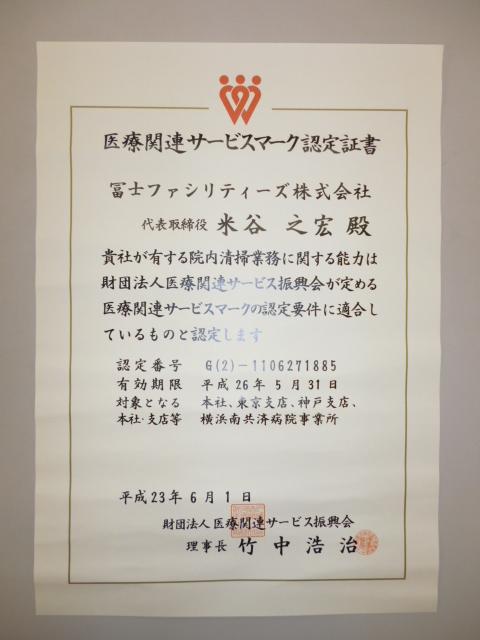 医療関連サービスマーク認定証書
冨士ファシリティーズ株式会社
代表取締役 米谷 之宏 殿
貴社が有する院内清掃業務に関する能力は
財団法人医療関連サービス振興会が定める
医療関連サービスマークの認定要件に適合し
ているものと認定します
認定番号 G(2)-1106271885
有効期限 平成26年 5月31日
対象となる 本社、東京支店、神戸支店、
本社・支店等 横浜南共済病院事業所
平成23年 6月 1日
財団法人医療関連サービス振興会
理事長 竹中浩治